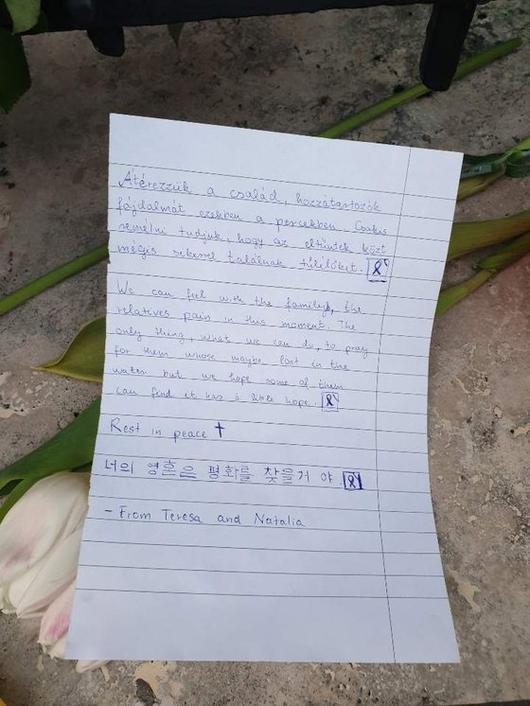 Átérezzük a család, hozzátartozók
fájdalmát ezekben a percekben. Csakis
remélni tudjuk, hogy az eltűntek közt
mégis sikerrel találnak túlélőket.
We can feel with the family, the
relatives pain in this moment. The
only thing, what we can do, to pray
for them whose maybe lost in the
water but we hope some of them
can find it has a little hope.
Rest in peace
너의 영혼은 평화를 찾을거 야
- From Teresa and Natalia